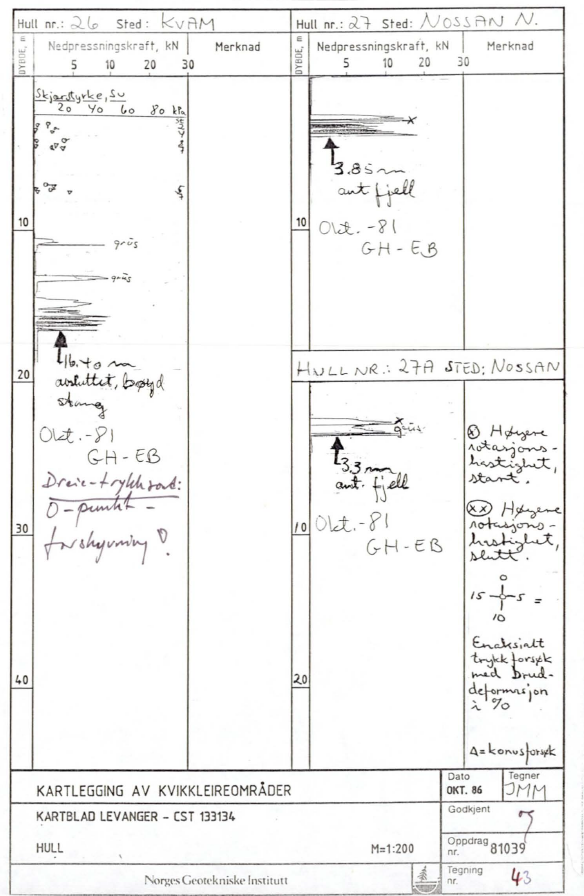 Hull nr.: 26 Sted: KVAM
DYBDE, m
Nedpressningskraft, kN
Merknad
5 10 20 30
Skjærstyrke, Su
20 40 60 80 kPa
10
grus
grus
16.40 m
avsluttet, bøyd
stang
20
Okt.-81
GH-EB
Dreie-trykksond:
0-punkt-
forskyvning?
30
40
Hull nr.: 27 Sted: NOSSAN N.
DYBDE, m
Nedpressningskraft, kN
Merknad
5 10 20 30
x
3.85 m
ant fjell
10
Okt.-81
GH-EB
HULL NR.: 27A STED: NOSSAN
x
grus
3,3 m
ant. fjell
10
Okt.-81
GH-EB
20
(x) Høyere
rotasjons-
hastighet,
start.
(xx) Høyere
rotasjons-
hastighet,
slutt.
0
15 5 =
10
Enaksialt
trykkforsøk
med brud-
deformasjon
i %
Δ=konusforsøk
KARTLEGGING AV KVIKKLEIREOMRÅDER
KARTBLAD LEVANGER - CST 133134
HULL M=1:200
Norges Geotekniske Institutt
Dato
OKT. 86
Tegner
JMM
Godkjent
Oppdrag
nr. 81039
Tegning
nr. 43